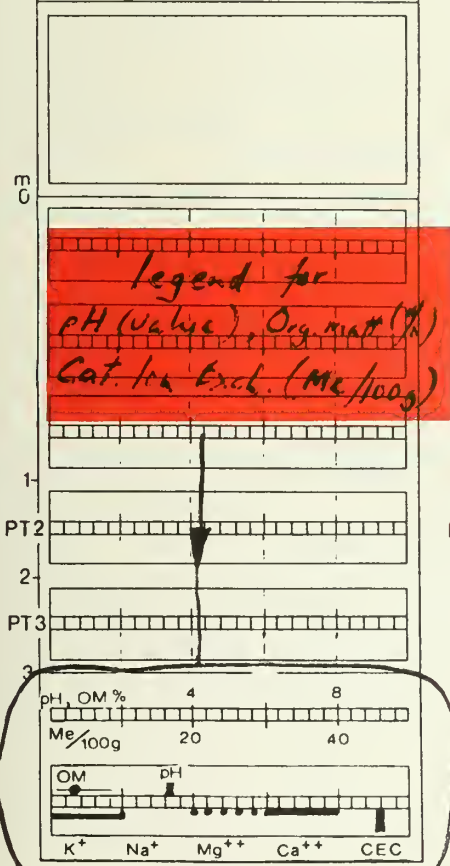 m
0
legend for
pH (value), Org. matt (%)
Cat. Ion Exch. (Me/100g)
1
PT2
2
PT3
3
pH, OM % 4 8
Me/100g 20 40
OM pH
K+ Na+ Mg++ Ca++ CEC